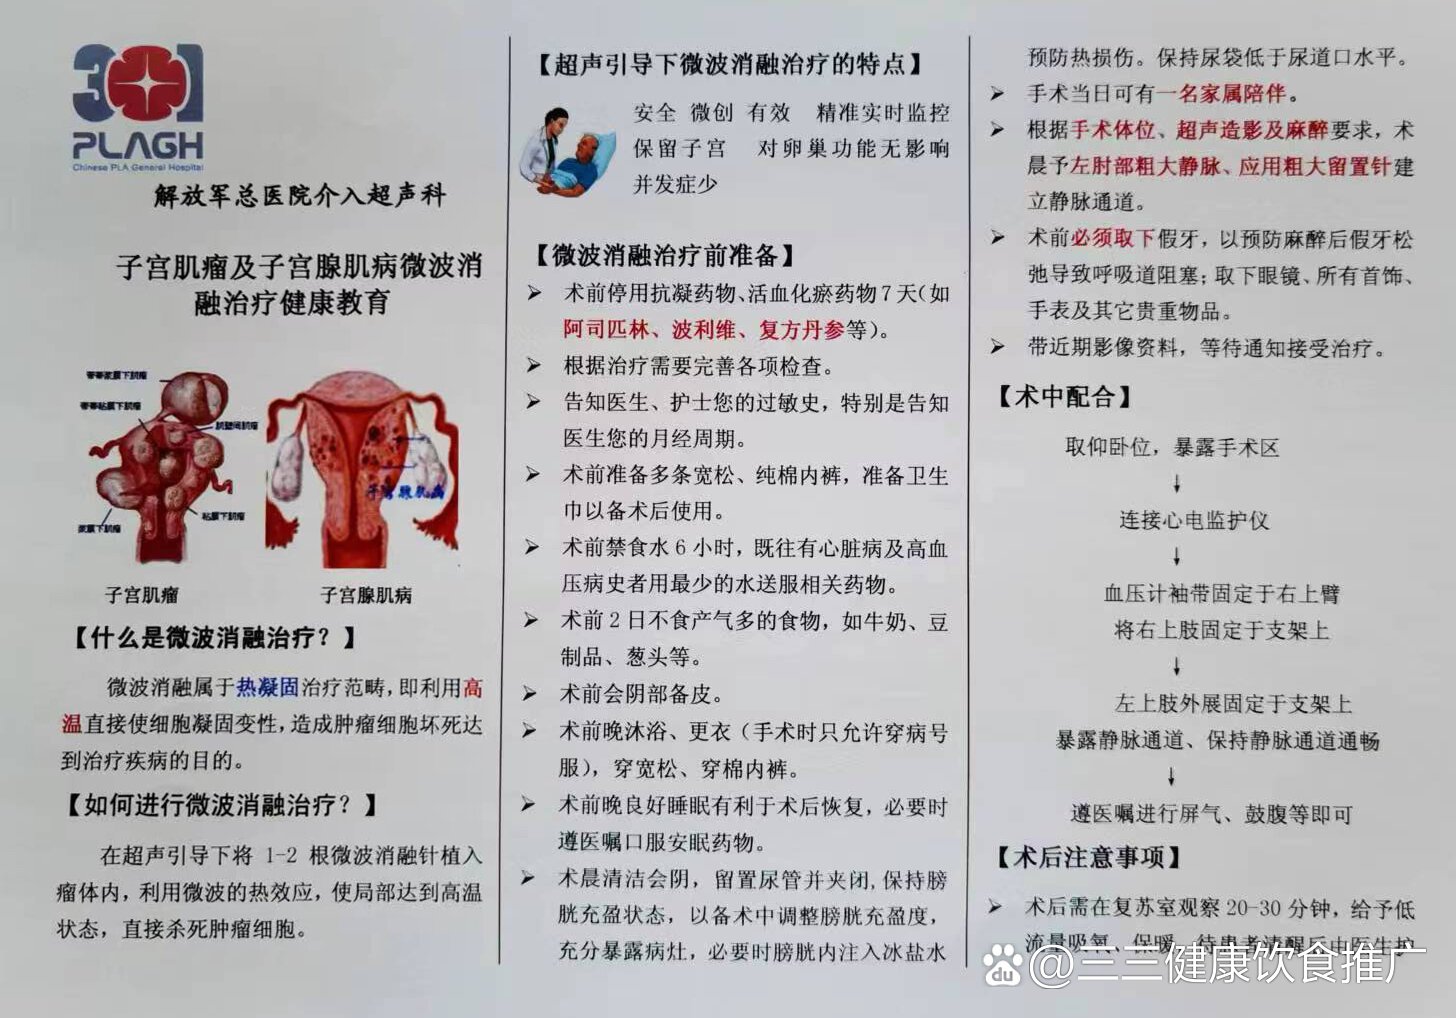 301
PLAGH
Chinese PLA General Hospital
解放军总医院介入超声科
子宫肌瘤及子宫腺肌病微波消
融治疗健康教育
带蒂浆膜下肌瘤
带蒂粘膜下肌瘤
肌壁间肌瘤
浆膜下肌瘤
粘膜下肌瘤
子宫腺肌病
子宫肌瘤
子宫腺肌病
【什么是微波消融治疗？】
微波消融属于热凝固治疗范畴,即利用高
温直接使细胞凝固变性,造成肿瘤细胞坏死达
到治疗疾病的目的。
【如何进行微波消融治疗？】
在超声引导下将 1-2 根微波消融针植入
瘤体内，利用微波的热效应，使局部达到高温
状态，直接杀死肿瘤细胞。
【超声引导下微波消融治疗的特点】
安全 微创 有效 精准实时监控
保留子宫 对卵巢功能无影响
并发症少
【微波消融治疗前准备】
➢ 术前停用抗凝药物、活血化瘀药物7天(如
阿司匹林、波利维、复方丹参等)。
➢ 根据治疗需要完善各项检查。
➢ 告知医生、护士您的过敏史，特别是告知
医生您的月经周期。
➢ 术前准备多条宽松、纯棉内裤，准备卫生
巾以备术后使用。
➢ 术前禁食水6小时，既往有心脏病及高血
压病史者用最少的水送服相关药物。
➢ 术前2日不食产气多的食物，如牛奶、豆
制品、葱头等。
➢ 术前会阴部备皮。
➢ 术前晚沐浴、更衣（手术时只允许穿病号
服），穿宽松、穿棉内裤。
➢ 术前晚良好睡眠有利于术后恢复，必要时
遵医嘱口服安眠药物。
➢ 术晨清洁会阴，留置尿管并夹闭,保持膀
胱充盈状态，以备术中调整膀胱充盈度，
充分暴露病灶，必要时膀胱内注入冰盐水
预防热损伤。保持尿袋低于尿道口水平。
➢ 手术当日可有一名家属陪伴。
➢ 根据手术体位、超声造影及麻醉要求，术
晨予左肘部粗大静脉、应用粗大留置针建
立静脉通道。
➢ 术前必须取下假牙，以预防麻醉后假牙松
弛导致呼吸道阻塞；取下眼镜、所有首饰、
手表及其它贵重物品。
➢ 带近期影像资料，等待通知接受治疗。
【术中配合】
取仰卧位，暴露手术区
↓
连接心电监护仪
↓
血压计袖带固定于右上臂
将右上肢固定于支架上
↓
左上肢外展固定于支架上
暴露静脉通道、保持静脉通道通畅
↓
遵医嘱进行屏气、鼓腹等即可
【术后注意事项】
➢ 术后需在复苏室观察20-30分钟，给予低
流量吸氧、保暖，待患者清醒后由医生护
du @三三健康饮食推广